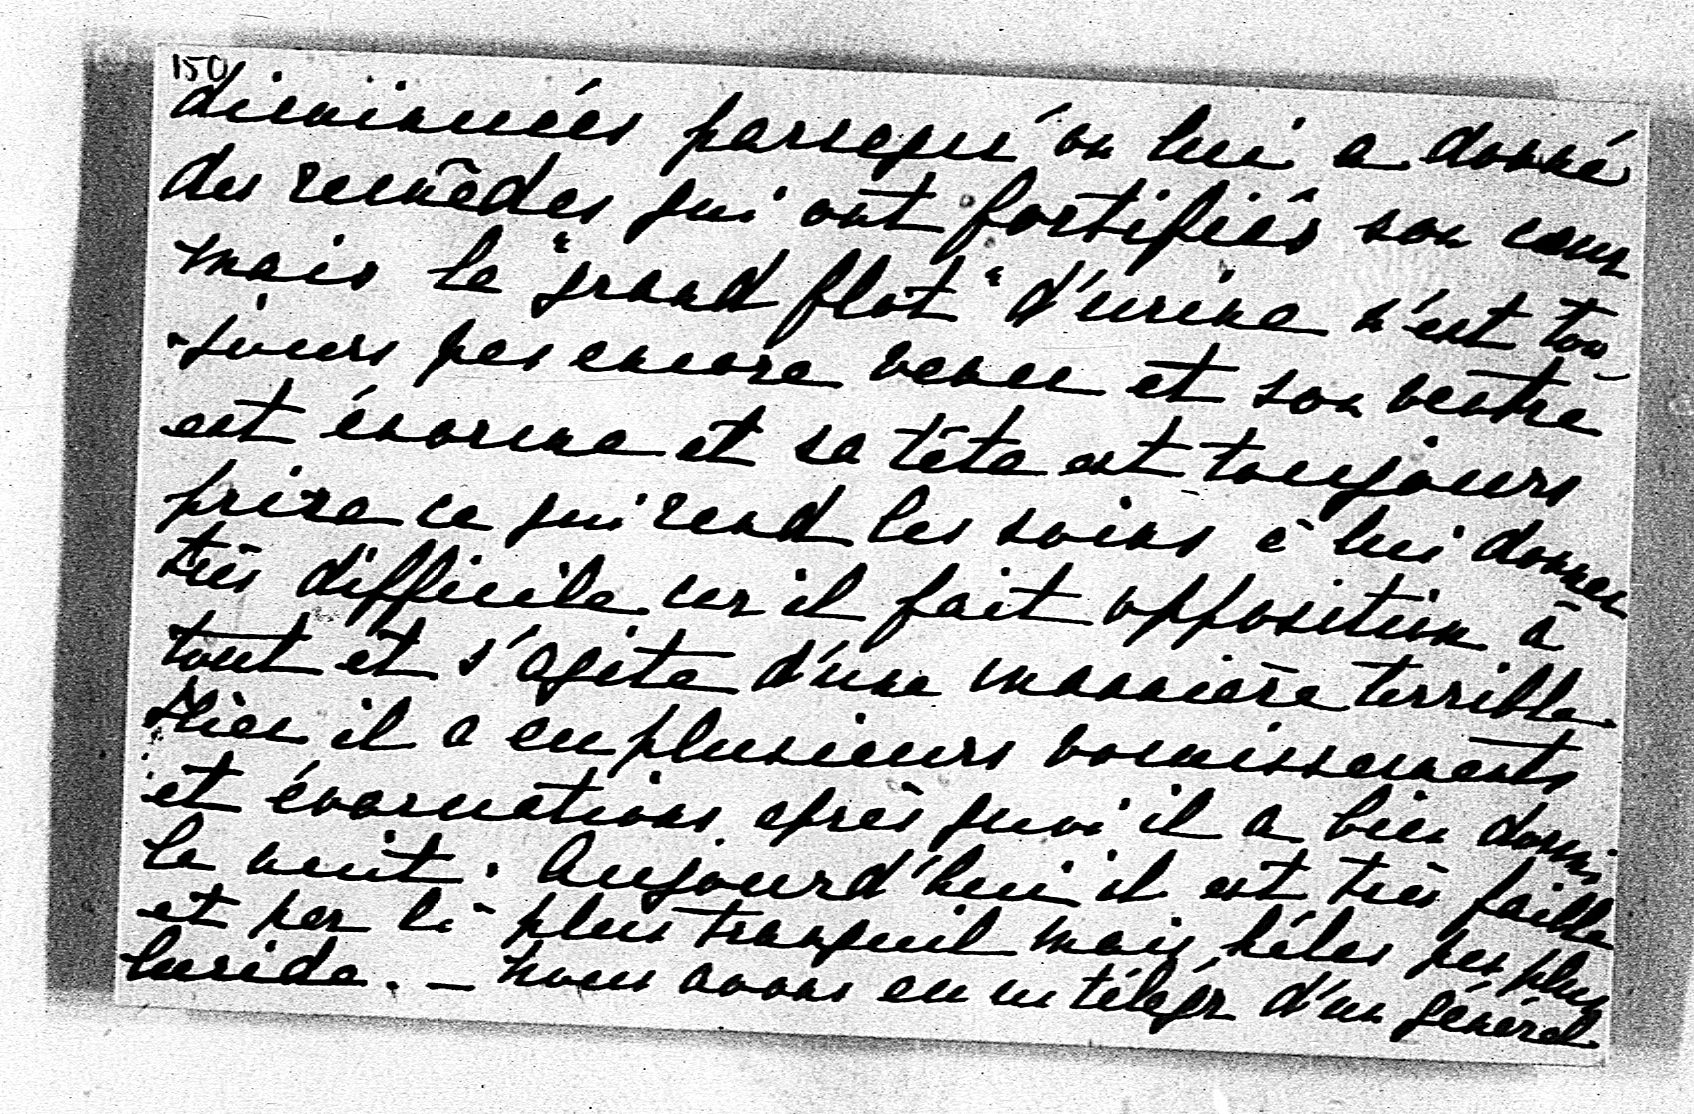 150
diminuées parsequ'on lui a donné
des remèdes qui ont fortifiés son cœur
mais le "grand flot" d'urine n'est tou-
-jours pas encore venu et son ventre
est énorme et sa tête est toujours
prise ce qui rend les soins à lui donner
très difficile car il fait opposition à
tout et s'agite d'une mannière terrible.
Hier il a eu plusieurs vomissements
et évacuations après quoi il a bien dormi
la nuit. Aujourd'hui il est très faible
et par là plus tranquil mais, hélas pas plus
lucide. — Nous avons eu un télégr. d'un général